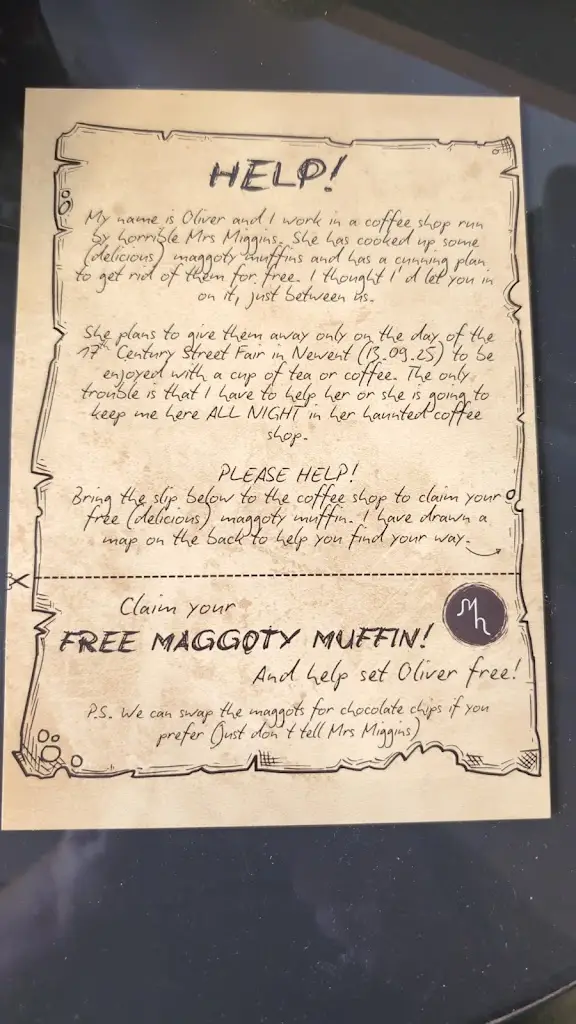 HELP!
My name is Oliver and I work in a coffee shop run
by horrible Mrs Miggins. She has cooked up some
(delicious) maggoty muffins and has a cunning plan
to get rid of them for free. I thought I'd let you in
on it, just between us.
She plans to give them away only on the day of the
17th Century Street Fair in Newent (13.09.25) to be
enjoyed with a cup of tea or coffee. The only
trouble is that I have to help her or she is going to
keep me here ALL NIGHT in her haunted coffee
shop.
PLEASE HELP!
Bring the slip below to the coffee shop to claim your
free (delicious) maggoty muffin. I have drawn a
map on the back to help you find your way.
Claim your
FREE MAGGOTY MUFFIN!
And help set Oliver free!
P.S. We can swap the maggots for chocolate chips if you
prefer (just don't tell Mrs Miggins)